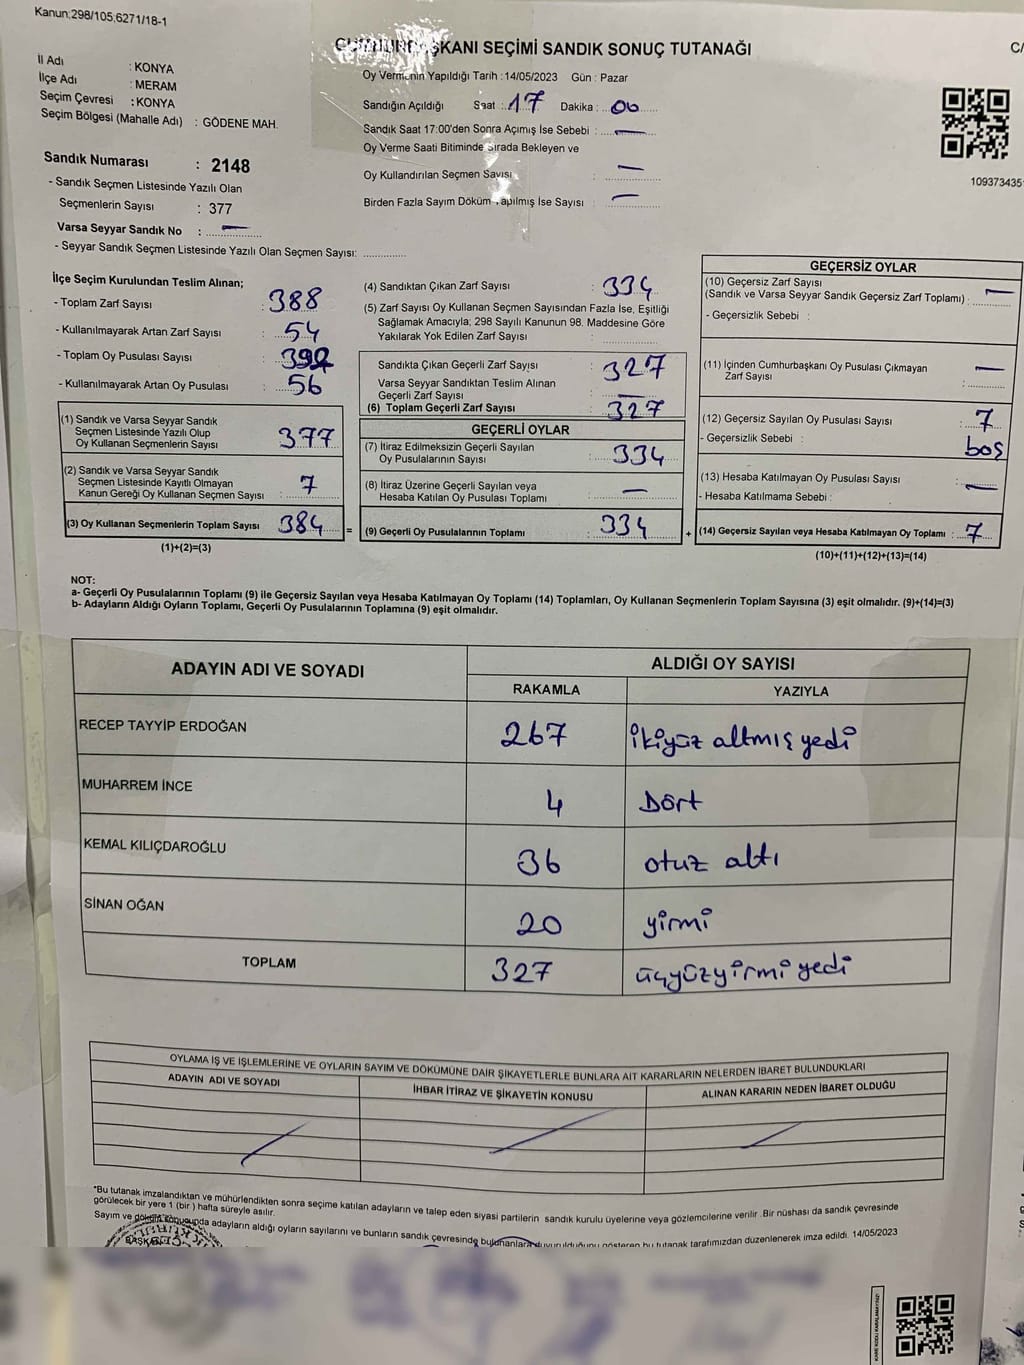 Kanun:298/105;6271/18-1
CUMHURBAŞKANI SEÇİMİ SANDIK SONUÇ TUTANAĞI
C/
İl Adı : KONYA
İlçe Adı : MERAM
Seçim Çevresi : KONYA
Seçim Bölgesi (Mahalle Adı) : GÖDENE MAH.
Oy Vermenin Yapıldığı Tarih : 14/05/2023 Gün : Pazar
Sandığın Açıldığı Saat : 17 Dakika : 00
Sandık Saat 17:00'den Sonra Açımış İse Sebebi : —
Oy Verme Saati Bitiminde Sırada Bekleyen ve
Oy Kullandırılan Seçmen Sayısı : —
Birden Fazla Sayım Döküm Yapılmış İse Sayısı : —
109373435
Sandık Numarası : 2148
- Sandık Seçmen Listesinde Yazılı Olan
Seçmenlerin Sayısı : 377
Varsa Seyyar Sandık No : —
- Seyyar Sandık Seçmen Listesinde Yazılı Olan Seçmen Sayısı:
İlçe Seçim Kurulundan Teslim Alınan;
- Toplam Zarf Sayısı : 388
- Kullanılmayarak Artan Zarf Sayısı : 54
- Toplam Oy Pusulası Sayısı :
- Kullanılmayarak Artan Oy Pusulası : 56
(1) Sandık ve Varsa Seyyar Sandık
Seçmen Listesinde Yazılı Olup
Oy Kullanan Seçmenlerin Sayısı : 377
(2) Sandık ve Varsa Seyyar Sandık
Seçmen Listesinde Kayıtlı Olmayan
Kanun Gereği Oy Kullanan Seçmen Sayısı : 7
(3) Oy Kullanan Seçmenlerin Toplam Sayısı : 384 =
(1)+(2)=(3)
(4) Sandıktan Çıkan Zarf Sayısı : 334
(5) Zarf Sayısı Oy Kullanan Seçmen Sayısından Fazla İse, Eşitliği
Sağlamak Amacıyla; 298 Sayılı Kanunun 98. Maddesine Göre
Yakılarak Yok Edilen Zarf Sayısı :
Sandıkta Çıkan Geçerli Zarf Sayısı : 327
Varsa Seyyar Sandıktan Teslim Alınan
Geçerli Zarf Sayısı : —
(6) Toplam Geçerli Zarf Sayısı : 327
GEÇERLİ OYLAR
(7) İtiraz Edilmeksizin Geçerli Sayılan
Oy Pusulalarının Sayısı : 334
(8) İtiraz Üzerine Geçerli Sayılan veya
Hesaba Katılan Oy Pusulası Toplamı : —
(9) Geçerli Oy Pusulalarının Toplamı : 334 +
GEÇERSİZ OYLAR
(10) Geçersiz Zarf Sayısı
(Sandık ve Varsa Seyyar Sandık Geçersiz Zarf Toplamı) : —
- Geçersizlik Sebebi :
(11) İçinden Cumhurbaşkanı Oy Pusulası Çıkmayan
Zarf Sayısı : —
(12) Geçersiz Sayılan Oy Pusulası Sayısı : 7
- Geçersizlik Sebebi : boş
(13) Hesaba Katılmayan Oy Pusulası Sayısı : —
- Hesaba Katılmama Sebebi :
(14) Geçersiz Sayılan veya Hesaba Katılmayan Oy Toplamı : 7
(10)+(11)+(12)+(13)=(14)
NOT:
a- Geçerli Oy Pusulalarının Toplamı (9) ile Geçersiz Sayılan veya Hesaba Katılmayan Oy Toplamı (14) Toplamları, Oy Kullanan Seçmenlerin Toplam Sayısına (3) eşit olmalıdır. (9)+(14)=(3)
b- Adayların Aldığı Oyların Toplamı, Geçerli Oy Pusulalarının Toplamına (9) eşit olmalıdır.
ADAYIN ADI VE SOYADI
ALDIĞI OY SAYISI
RAKAMLA
YAZIYLA
RECEP TAYYİP ERDOĞAN 267 ikiyüz altmış yedi
MUHARREM İNCE 4 Dört
KEMAL KILIÇDAROĞLU 36 otuz altı
SİNAN OĞAN 20 yirmi
TOPLAM 327 üçyüzyirmi yedi
OYLAMA İŞ VE İŞLEMLERİNE VE OYLARIN SAYIM VE DÖKÜMÜNE DAİR ŞİKAYETLERLE BUNLARA AİT KARARLARIN NELERDEN İBARET BULUNDUKLARI
ADAYIN ADI VE SOYADI
İHBAR İTİRAZ VE ŞİKAYETİN KONUSU
ALINAN KARARIN NEDEN İBARET OLDUĞU
*Bu tutanak imzalandıktan ve mühürlendikten sonra seçime katılan adayların ve talep eden siyasi partilerin sandık kurulu üyelerine veya gözlemcilerine verilir. Bir nüshası da sandık çevresinde
görülecek bir yere 1 (bir) hafta süreyle asılır.
Sayım ve döküm sonucunda adayların aldığı oyların sayılarını ve bunların sandık çevresinde bulunanlara duyurulduğunu gösteren bu tutanak tarafımızdan düzenlenerek imza edildi. 14/05/2023